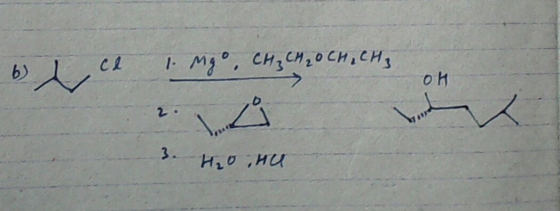 b) Cl 1. Mg⁰, CH₃CH₂OCH₂CH₃
OH
2. O
3. H₂O, HCl